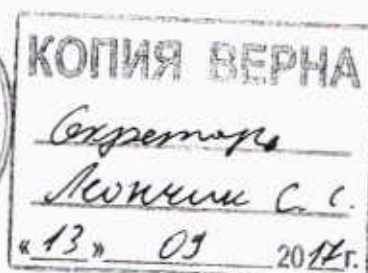 КОПИЯ ВЕРНА
Секретарь
Леончик С. С.
« 13 » 09 2017г.